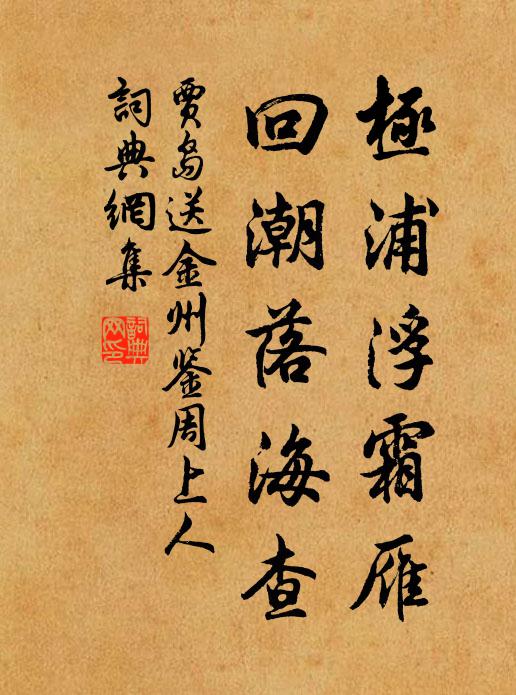 極浦浮霜雁
回潮落海查
賈島送金州鉴周上人
詞典網集
詞典网印